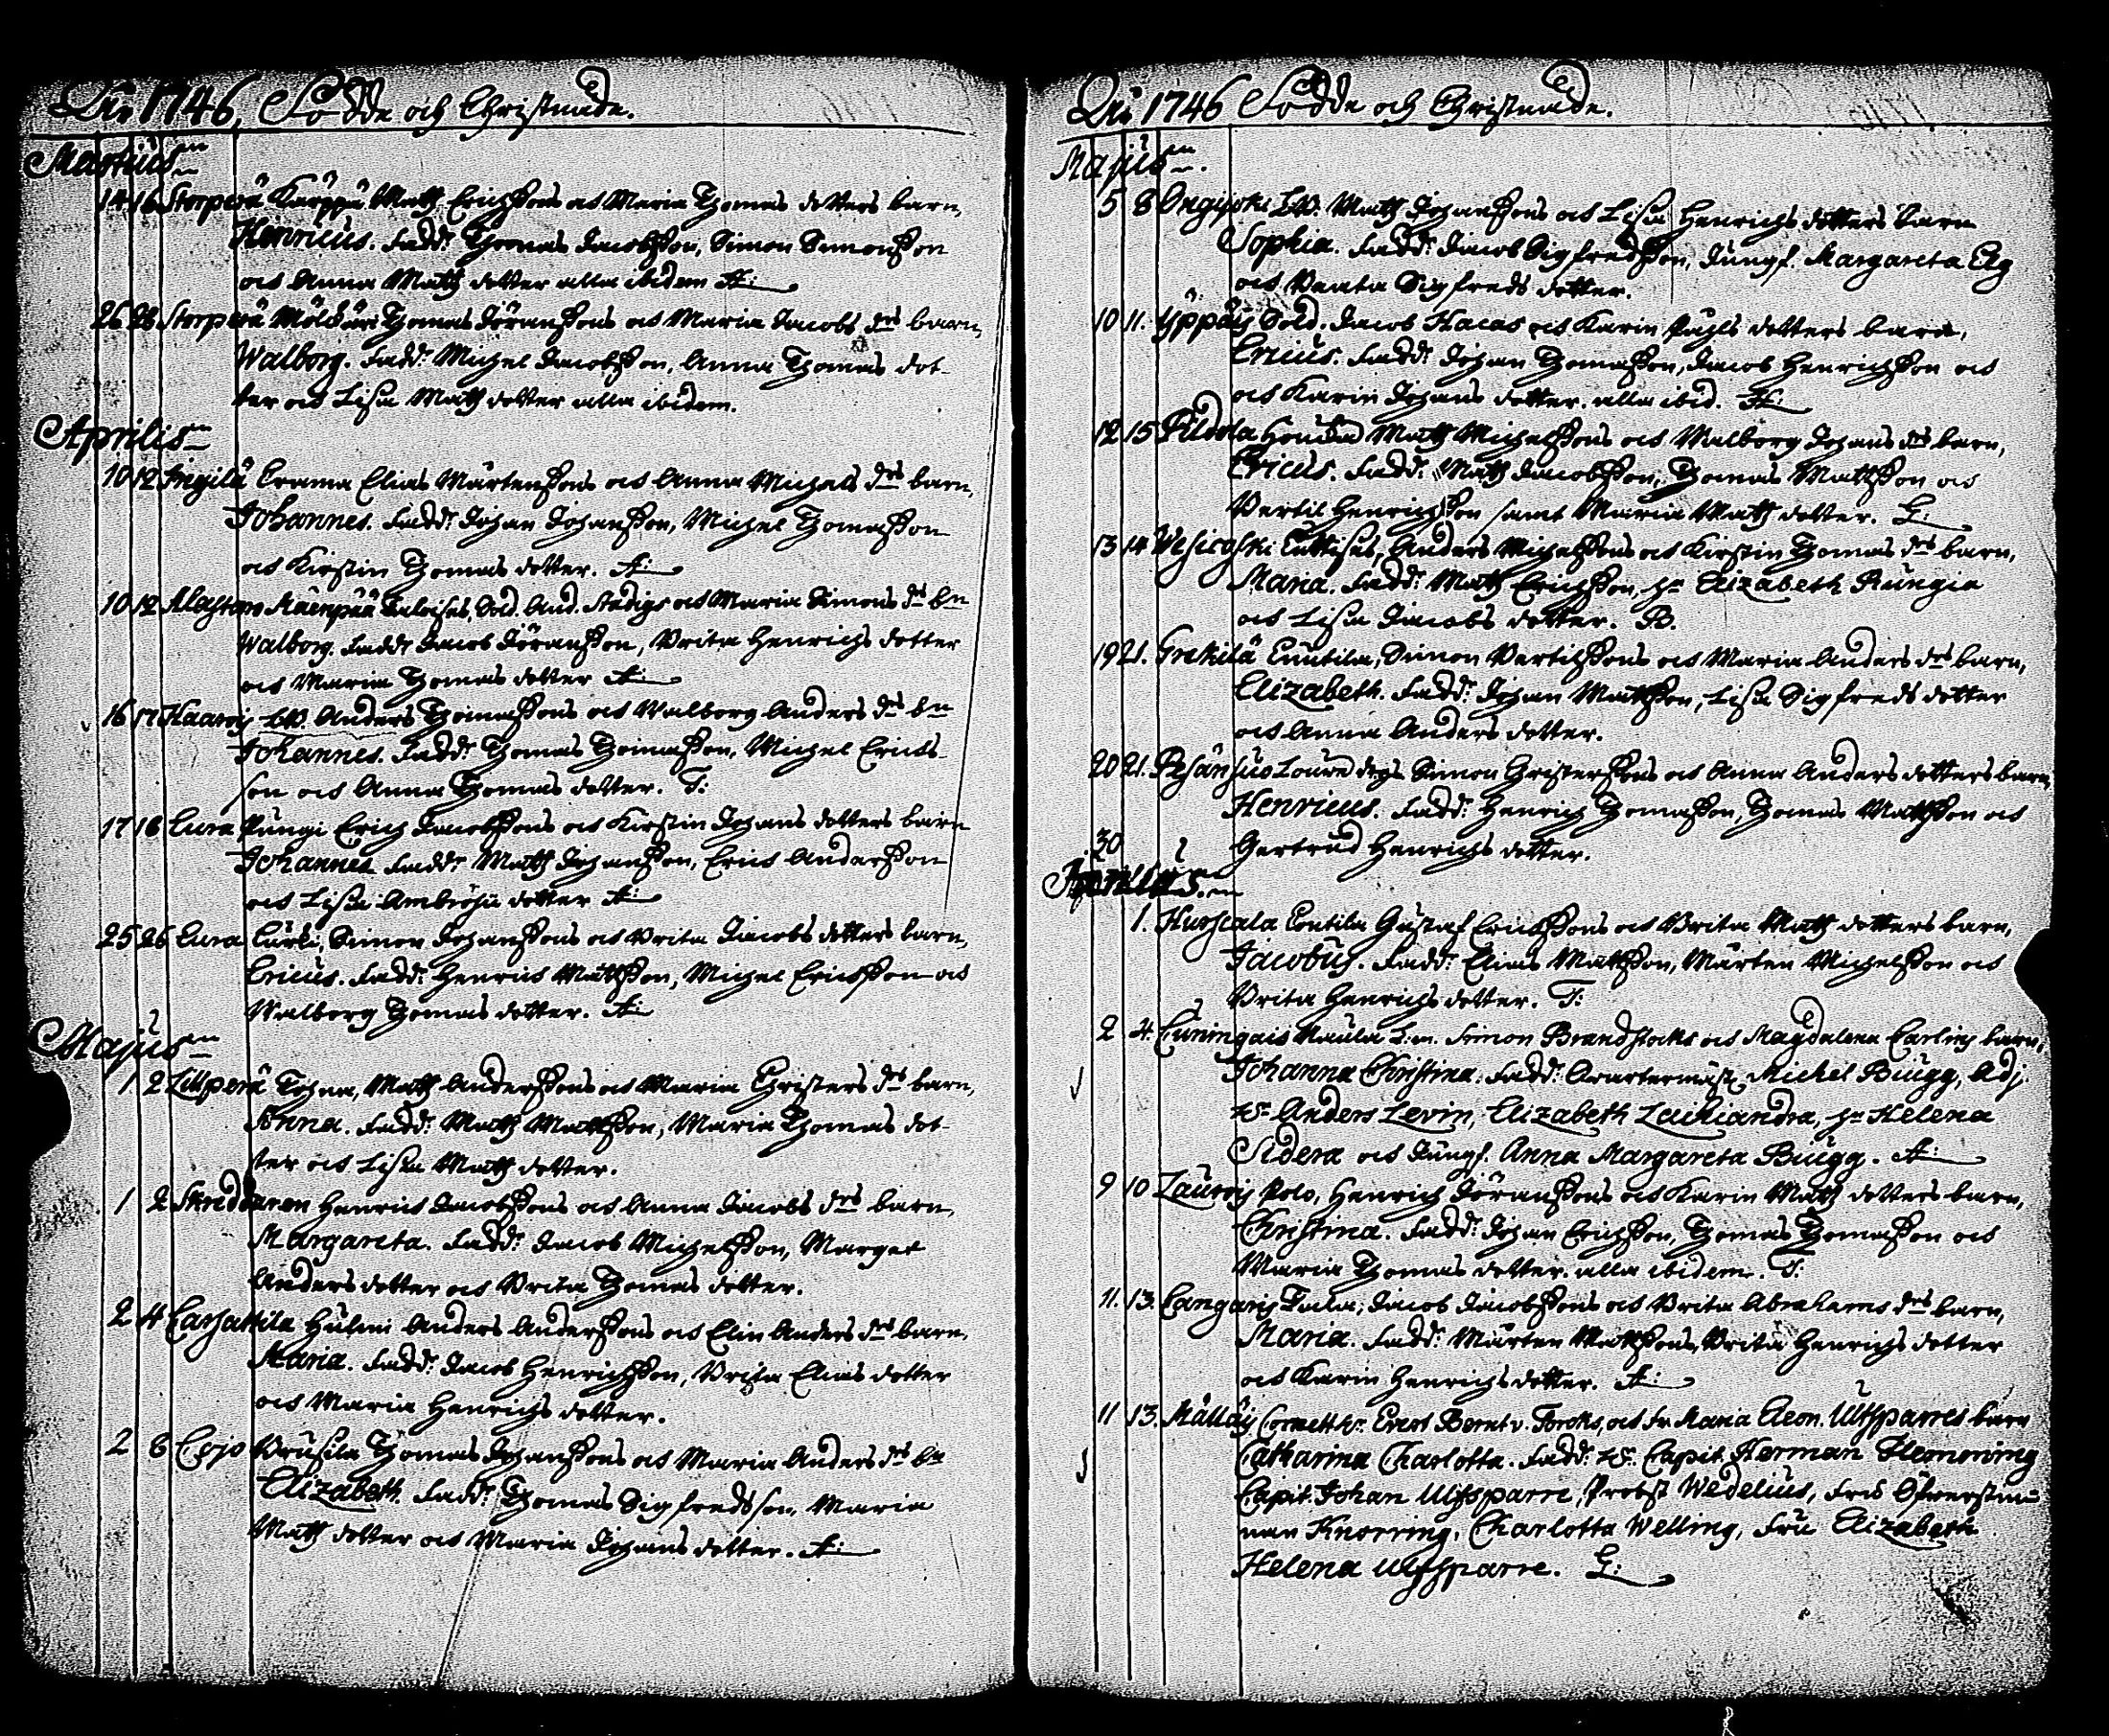 Åhr 1746, Födde och Christnade.
Martius
14 16 Storperä Karppa Matth Erichssons och Maria Thomas dotters barn,
Henricus. Fadd: Thomas Jacobsson, Simon Simonsson
och Anna Matth dotter alla ibidem A:
26 28 Storperä Thomas Jöranssons och Maria Jacobs drs barn,
Walborg. Fadd: Michel Jacobsson, Anna Thomas dot-
ter och Lisa Matth dotter alla ibidem.
Aprilis
10 12 Angilä Erama Elias Mårtenssons och Anna Michels drs barn,
Johannes. Fadd: Johan Johansson, Michel Thomasson
och Kirstin Thomas dotter. A:
10 12 Alastaro Mäenpää Sold. And. Stadigs och Maria Simons drs bn
Walborg. Fadd: Jacob Jöransson, Brita Henrichs dotter
och Maria Thomas dotter A:
16 17 Haaroij Anders Thomassons och Walborg Anders drs bn
Johannes. Fadd: Thomas Thomasson, Michel Erics-
son och Anna Thomas dotter. T:
17 18 Eura Pungi Erich Jacobssons och Kirstin Johans dotters barn
Johannes Fadd: Matth Johansson, Eric Andersson
och Lisa Ambrosii dotter A:
25 26 Eura Simon Johanssons och Brita Jacobs dotters barn,
Ericus. Fadd: Henric Mattsson, Michel Ericsson och
Walborg Thomas dotter. A:
Majus
1 2 Lillperä Matth Anderssons och Maria Christers drs barn,
Anna. Fadd: Matth Mattsson, Maria Thomas dot-
ter och Lisa Matth dotter.
1 2 Henric Jacobssons och Anna Jacobs drs barn,
Margareta. Fadd: Jacob Michelsson, Marget
Anders dotter och Brita Thomas dotter.
2 4 Carhattila Anders Anderssons och Elin Anders drs barn,
Maria. Fadd: Jacob Henrichsson, Brita Elias dotter
och Maria Henrichs dotter.
2 8 Cojo Brusila Thomas Johanssons och Maria Anders drs bn
Elizabeth. Fadd: Thomas Sigfredsson, Maria
Matth dotter och Maria Johans dotter. A:
Åhr 1746 Födde och Christnade.
Majus.
5 8 Matth Johanssons och Lisa Henrichs dotters barn
Sophia. Fadd: Jacob Sigfredsson, Jungf. Margareta Elg
och Beata Sigfreds dotter.
10 11. Yppäis Sold. Jacob Hacas och Karin Påhls dotters barn,
Ericus. Fadd: Johan Thomasson, Jacob Henrichsson och
och Karin Johans dotter. alla ibid. A:
12 15 Matth Michelssons och Walborg Johans drs barn,
Ericus. Fadd: Matth Jacobsson, Thomas Mattsson och
Bertil Henrichsson samt Maria Matth dotter. L:
13 14 Wesicoski Anders Michelssons och Kirstin Thomas drs barn,
Maria. Fadd: Matth Erichsson, Elizabeth Rungia
och Lisa Jacobs dotter. B.
19 21. Grekilä Simon Bertilssons och Maria Anders drs barn,
Elizabeth. Fadd: Johan Mattsson, Lisa Sigfreds dotter
och Anna Anders dotter.
20 21. Pehänsuo Simon Christerssons och Anna Anders dotters barn,
Henricus. Fadd: Henrich Thomasson, Thomas Mattsson och
.30 Gertrud Henrichs dotter.
Junius.
1. Hurscala Gustaf Ericssons och Brita Matth dotters barn,
Jacobus. Fadd: Elias Mattsson, Mårten Michelsson och
Brita Henrichs dotter. T:
2 4. Cuningais Simon Brandstacks och Magdalena Carlins barn,
Johanna Christina. Fadd: Qvartermäst. Michel Bugg, Adj.
Hr Anders Levin, Elizabeth Zachiandra, Helena
Sidera och Jungf. Anna Margareta Bugg. A:
9 10 Laurois Polo, Henrich Jöranssons och Karin Matth dotters barn,
Christina. Fadd: Johan Erichsson, Thomas Thomasson och
Maria Thomas dotter. alla ibidem. T:
11. 13. Cangaris Jacob Jacobssons och Brita Abrahams drs barn,
Maria. Fadd: Mårten Mattssons, Brita Henrichs dotter
och Karin Henrichs dotter. A:
11 13. Mälläis Cornett Hr. Evert Bernt v. Torcks, och fr. Maria Eleon. Ulfsparres barn
Catharina Charlotta. Fadd: Hr. Capit. Herman Flemming
Capit. Johan Ulfsparre, Probst Wedelius, Fru Öfwerstin-
nan Knorring, Charlotta Welling, Fru Elizabeth
Helena Ulfsparre. L: